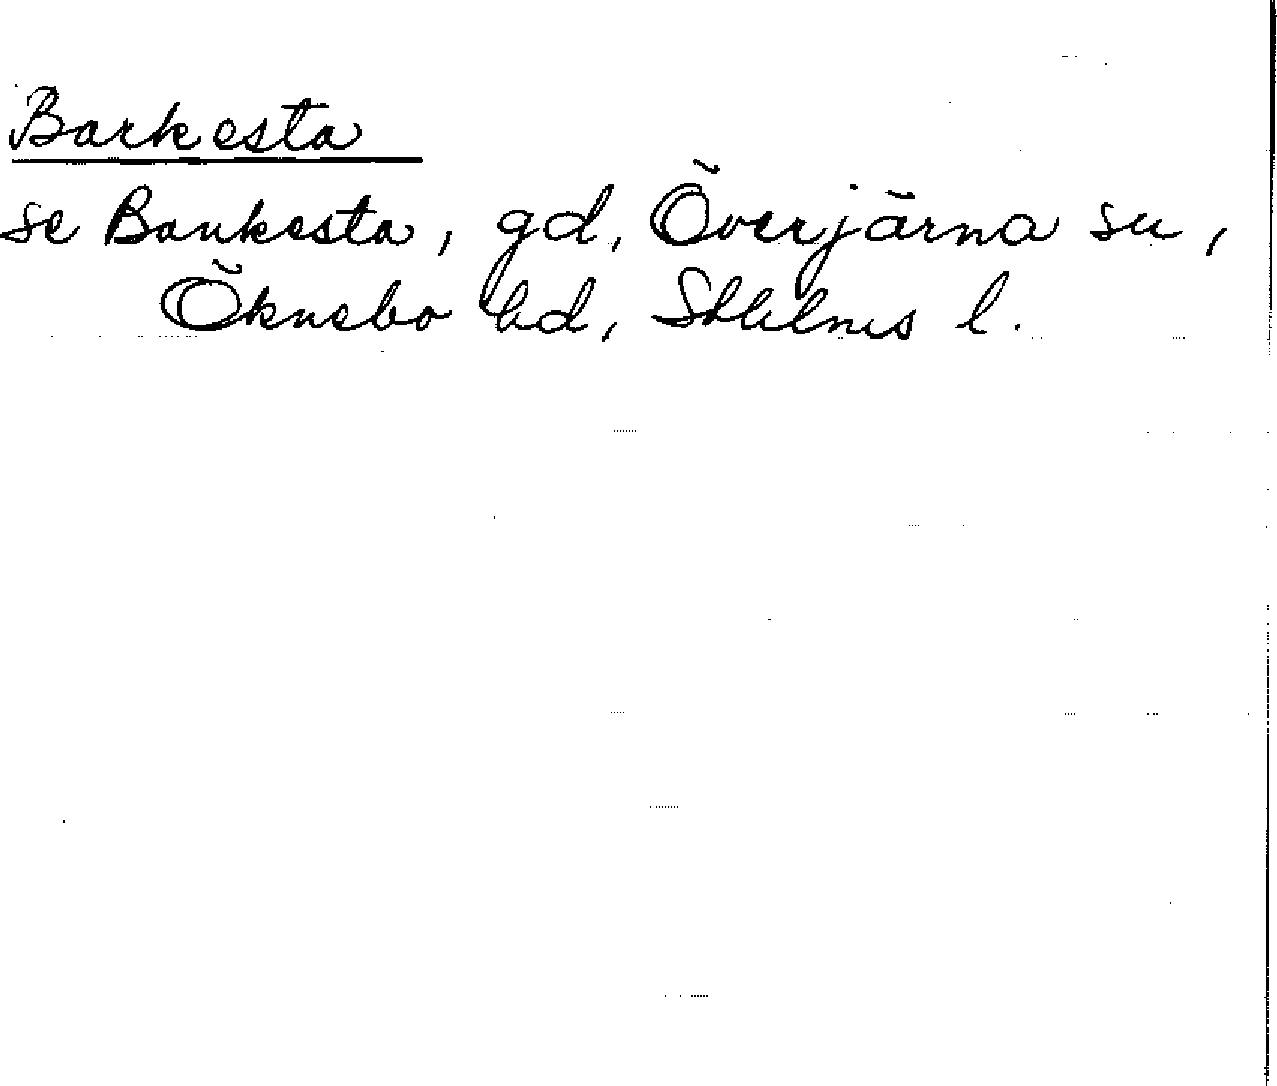 Barkesta
se Bankesta, gd, Överjärna sn,
Öknebo hd, Sthlms l.